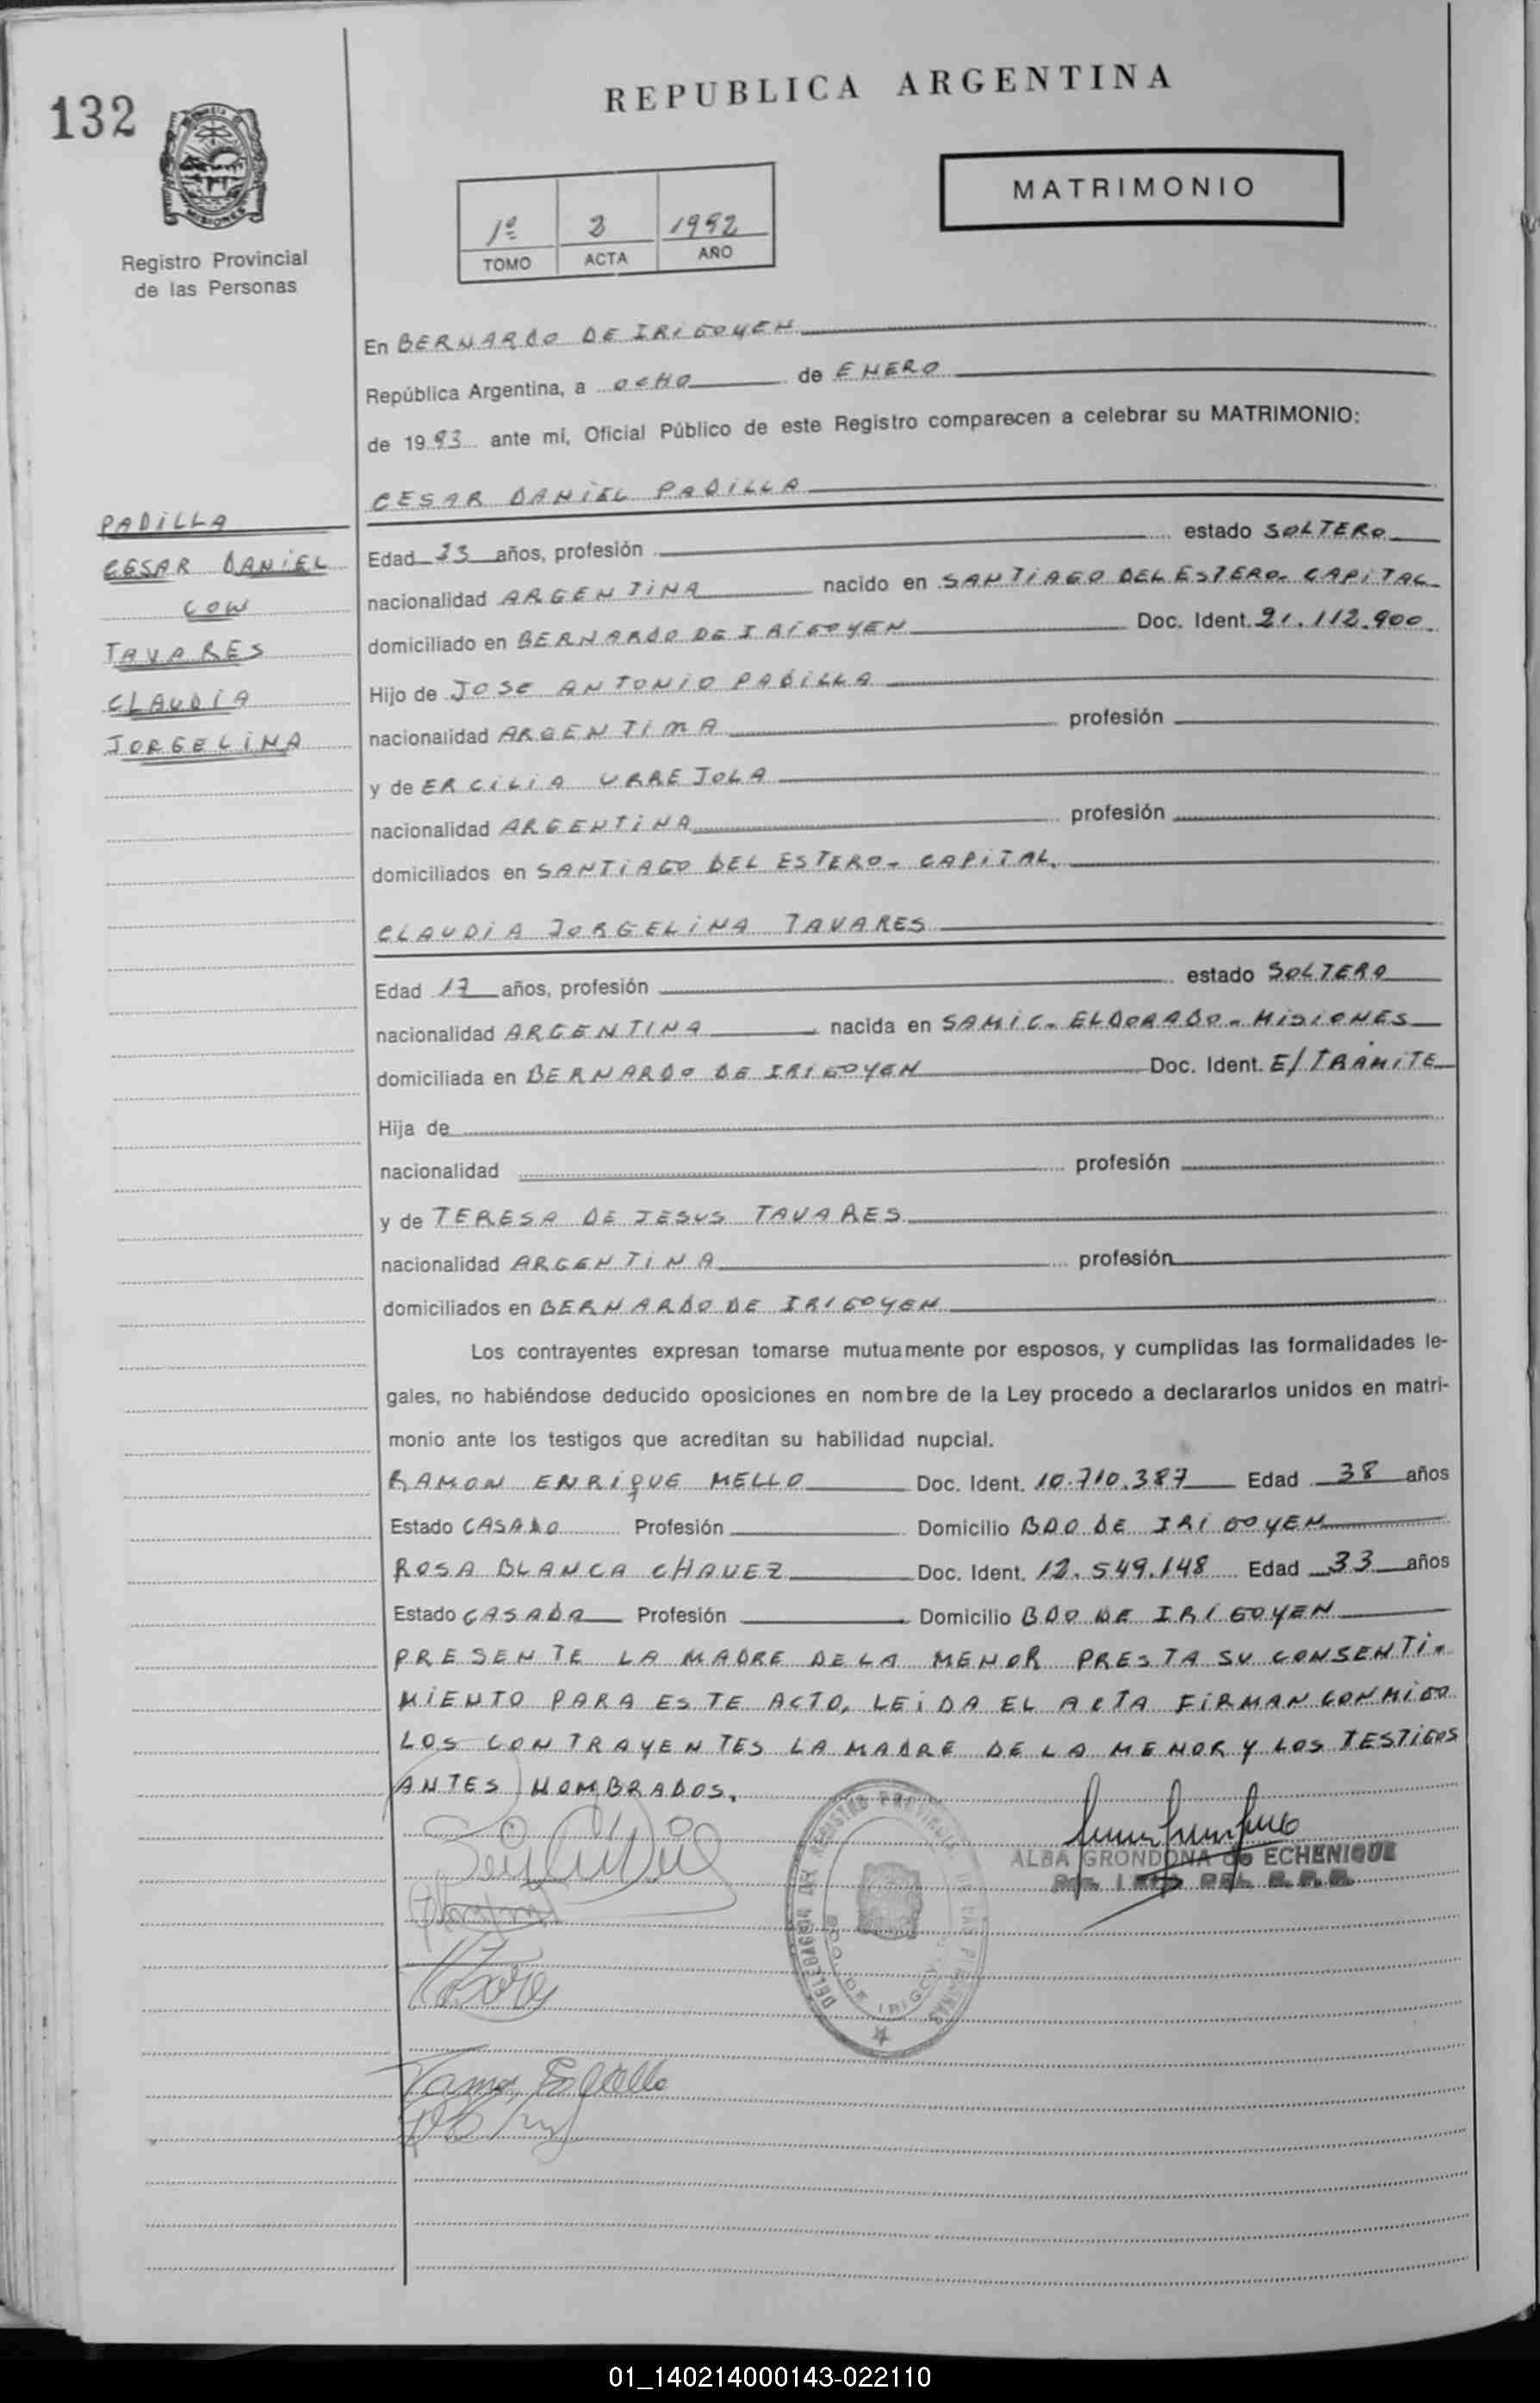 132
REPUBLICA ARGENTINA
MATRIMONIO
MISIONES
Registro Provincial
de las Personas
1º 2 1992
TOMO ACTA AÑO
En BERNARDO DE IRIGOYEN
República Argentina, a OCHO de ENERO
de 1993 ante mí, Oficial Público de este Registro comparecen a celebrar su MATRIMONIO:
CESAR DANIEL PADILLA
PADILLA
CESAR DANIEL
CON
TAVARES
CLAUDIA
JORGELINA
Edad 23 años, profesión estado SOLTERO
nacionalidad ARGENTINA nacido en SANTIAGO DEL ESTERO- CAPITAL
domiciliado en BERNARDO DE IRIGOYEN Doc. Ident. 21.112.900
Hijo de JOSE ANTONIO PADILLA
nacionalidad ARGENTINA profesión
y de ERCILIA URREJOLA
nacionalidad ARGENTINA profesión
domiciliados en SANTIAGO DEL ESTERO- CAPITAL.
CLAUDIA JORGELINA TAVARES
Edad 17 años, profesión estado SOLTERA
nacionalidad ARGENTINA nacida en SAMIC- ELDORADO- MISIONES
domiciliada en BERNARDO DE IRIGOYEN Doc. Ident. E/TRAMITE
Hija de
nacionalidad profesión
y de TERESA DE JESUS TAVARES
nacionalidad ARGENTINA profesión
domiciliados en BERNARDO DE IRIGOYEN
Los contrayentes expresan tomarse mutuamente por esposos, y cumplidas las formalidades le-
gales, no habiéndose deducido oposiciones en nombre de la Ley procedo a declararlos unidos en matri-
monio ante los testigos que acreditan su habilidad nupcial.
RAMON ENRIQUE MELLO Doc. Ident. 10.710.387 Edad 38 años
Estado CASADO Profesión Domicilio BDO DE IRIGOYEN
ROSA BLANCA CHAVEZ Doc. Ident. 12.549.148 Edad 33 años
Estado CASADA Profesión Domicilio BDO DE IRIGOYEN
PRESENTE LA MADRE DE LA MENOR PRESTA SU CONSENTI-
MIENTO PARA ESTE ACTO, LEIDA EL ACTA FIRMAN CONMIGO
LOS CONTRAYENTES LA MADRE DE LA MENOR Y LOS TESTIGOS
ANTES NOMBRADOS.
DELEGACION DEL REGISTRO PROVINCIAL DE LAS PERSONAS
BDO. DE IRIGOYEN
ALBA GRONDONA de ECHENIQUE
01_140214000143-022110